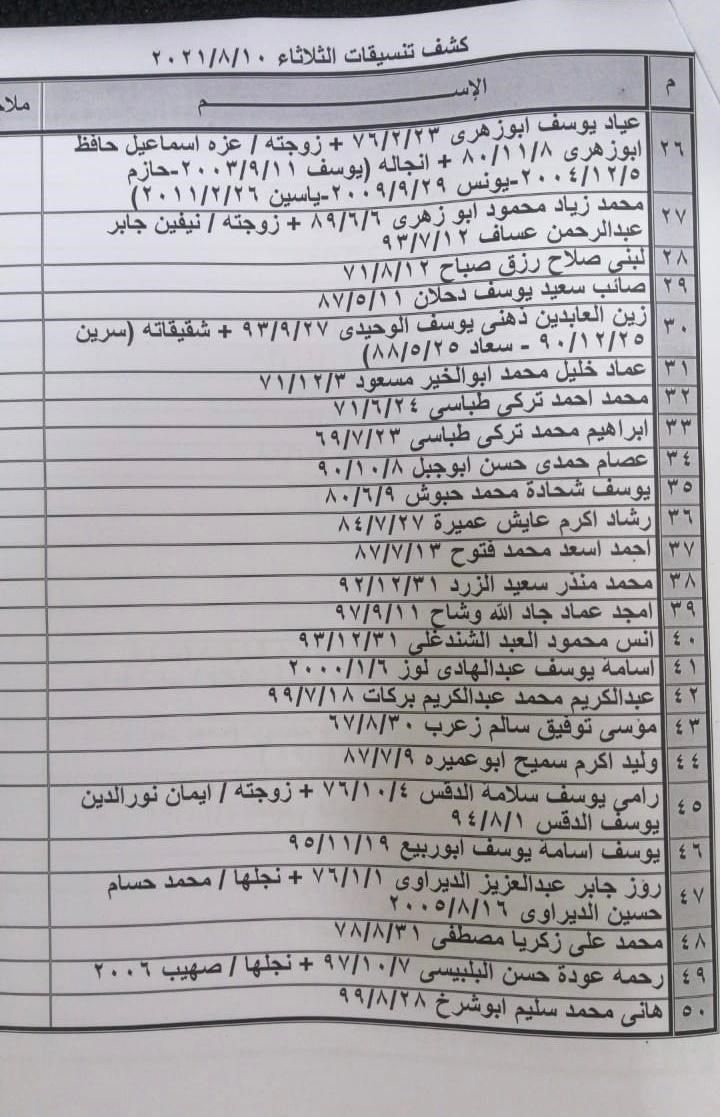 كشف تنسيقات الثلاثاء ٢٠٢١/٨/١٠
م
الإســـــــــم
٢٦
عياد يوسف ابوزهرى ٧٦/٢/٢٣ + زوجته / عزه اسماعيل حافظ
ابوزهرى ٨٠/١١/٨ + انجاله (يوسف ٢٠٠٣/٩/١١-حازم
٢٠٠٤/١٢/٥-يونس ٢٠٠٩/٩/٢٩-ياسين ٢٠١١/٢/٢٦)
٢٧
محمد زياد محمود ابو زهرى ٨٩/٦/٦ + زوجته / نيفين جابر
عبدالرحمن عساف ٩٣/٧/١٢
٢٨ لبنى صلاح رزق صباح ٧١/٨/١٢
٢٩ صائب سعيد يوسف دحلان ٨٧/٥/١١
٣٠
زين العابدين ذهنى يوسف الوحيدى ٩٣/٩/٢٧ + شقيقاته (سرين
٩٠/١٢/٢٥ - سعاد ٨٨/٥/٢٥)
٣١ عماد خليل محمد ابوالخير مسعود ٧١/١٢/٣
٣٢ محمد احمد تركى طباسى ٧١/٦/٢٤
٣٣ ابراهيم محمد تركى طباسى ٦٩/٧/٢٣
٣٤ عصام حمدى حسن ابوجبل ٩٠/١٠/٨
٣٥ يوسف شحادة محمد حبوش ٨٠/٦/٩
٣٦ رشاد اكرم عايش عميرة ٨٤/٧/٢٧
٣٧ احمد اسعد محمد فتوح ٨٧/٧/١٣
٣٨ محمد منذر سعيد الزرد ٩٢/١٢/٣١
٣٩ امجد عماد جاد الله وشاح ٩٧/٩/١١
٤٠ انس محمود العبد الشندغلى ٩٣/١٢/٣١
٤١ اسامة يوسف عبدالهادى لوز ٢٠٠٠/١/٦
٤٢ عبدالكريم محمد عبدالكريم بركات ٩٩/٧/١٨
٤٣ موسى توفيق سالم زعرب ٦٧/٨/٣٠
٤٤ وليد اكرم سميح ابوعميره ٨٧/٧/٩
٤٥
رامى يوسف سلامة الدقس ٧٦/١٠/٤ + زوجته / ايمان نورالدين
يوسف الدقس ٩٤/٨/١
٤٦ يوسف اسامة يوسف ابوربيع ٩٥/١١/١٩
٤٧
روز جابر عبدالعزيز الديراوى ٧٦/١/١ + نجلها / محمد حسام
حسين الديراوى ٢٠٠٥/٨/١٦
٤٨ محمد على زكريا مصطفى ٧٨/٨/٣١
٤٩ رحمه عودة حسن البلبيسى ٩٧/١٠/٧ + نجلها / صهيب ٢٠٠٦
٥٠ هانى محمد سليم ابوشرخ ٩٩/٨/٢٨